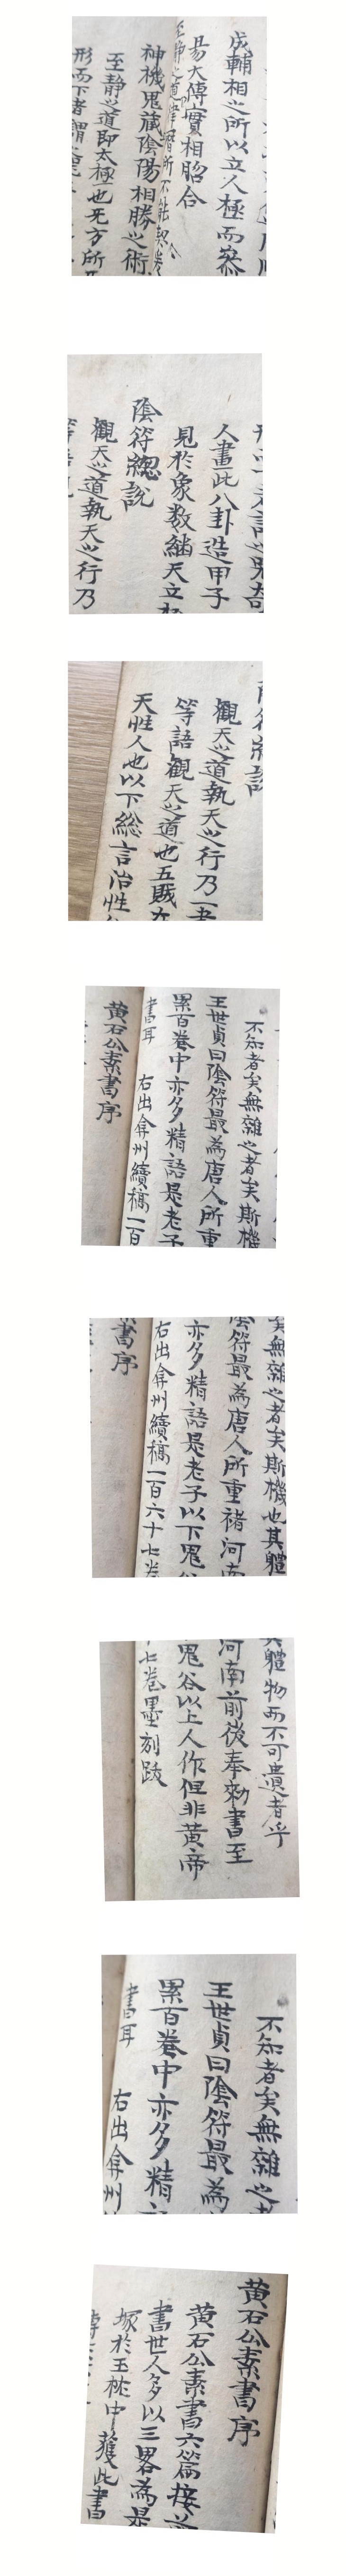 成輔相之所以立人極而寀
易大傳實相吻合
神機鬼藏陰陽相勝之術
至靜之道即太極也无方所
形而下者謂之
人畫此八卦造甲子
見於象数継天立
陰符總説
觀天之道執天之行乃
觀天之道執天之行乃一
等語觀天之道也五賊在
天性人也以下総言治性
不知者矣無雜之者矣斯機
王世貞曰陰符最為唐人所重
累百卷中亦多精語是老子
書耳 右出弇州續稿一百
黄石公素書序
矣無雜之者矣斯機也其體
陰符最為唐人所重褚河南
亦多精語是老子以下鬼
右出弇州續稿一百六十七卷
書序
其體物而不可遺者乎
河南前後奉勑書至
鬼谷以上人作但非黄帝
七卷墨刻跋
不知者矣無雜之
王世貞曰陰符最為
累百卷中亦多精
書耳 右出弇州
黄石公素書序
黄石公素書六篇按
書世人多以三畧為是
塚於玉枕中獲此書